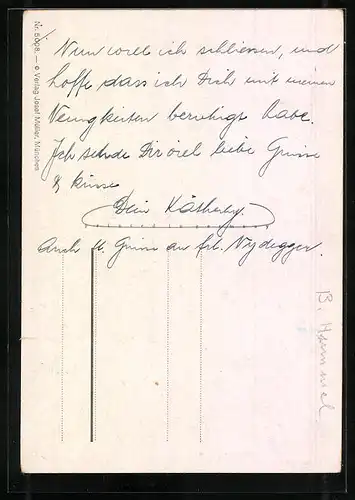 Nun will ich schliessen, und
hoffe dass ich Dich mit meinen
Neuigkeiten beruhigt habe.
Ich sende Dir viel liebe Grüsse
& küsse
Dein
Auch fr. Grüsse an Frl. Nydegger.
B. Hummel
Nr. 5008. — © Verlag Josef Müller, München